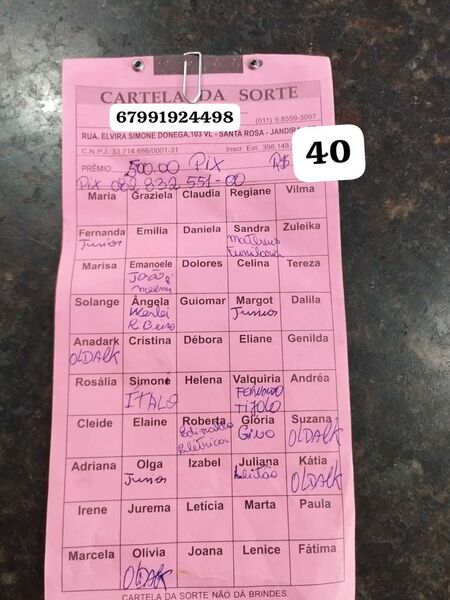 CARTELA DA SORTE
67991924498
(011) 9.8559-3097
RUA. ELVIRA SIMONE DONEGA,103 VL - SANTA ROSA - JANDIRA
C.N.P.J. 33.714.686/0001-31 Inscr. Est. 398.148
PRÊMIO: 500.00 PIX R$ 40
PIX 082 832 551-00
Maria Graziela Claudia Regiane Vilma
Fernanda Emilia Daniela Sandra Zuleika
Junios Matheus
Marisa Emanoele Dolores Celina Tereza
João
Solange Ângela Guiomar Margot Dalila
Werlei Junios
R. Beiro
Anadark Cristina Débora Eliane Genilda
OLDALK
Rosália Simone Helena Valquiria Andréa
ÍTALO FERNANDO
TIJOLO
Cleide Elaine Roberta Glória Suzana
Edinaldo Gino OLDALK
Elétrica
Adriana Olga Izabel Juliana Kátia
Junios Leitão OLDALK
Irene Jurema Letícia Marta Paula
Marcela Olivia Joana Lenice Fátima
OLDALK
CARTELA DA SORTE NÃO DÁ BRINDES.